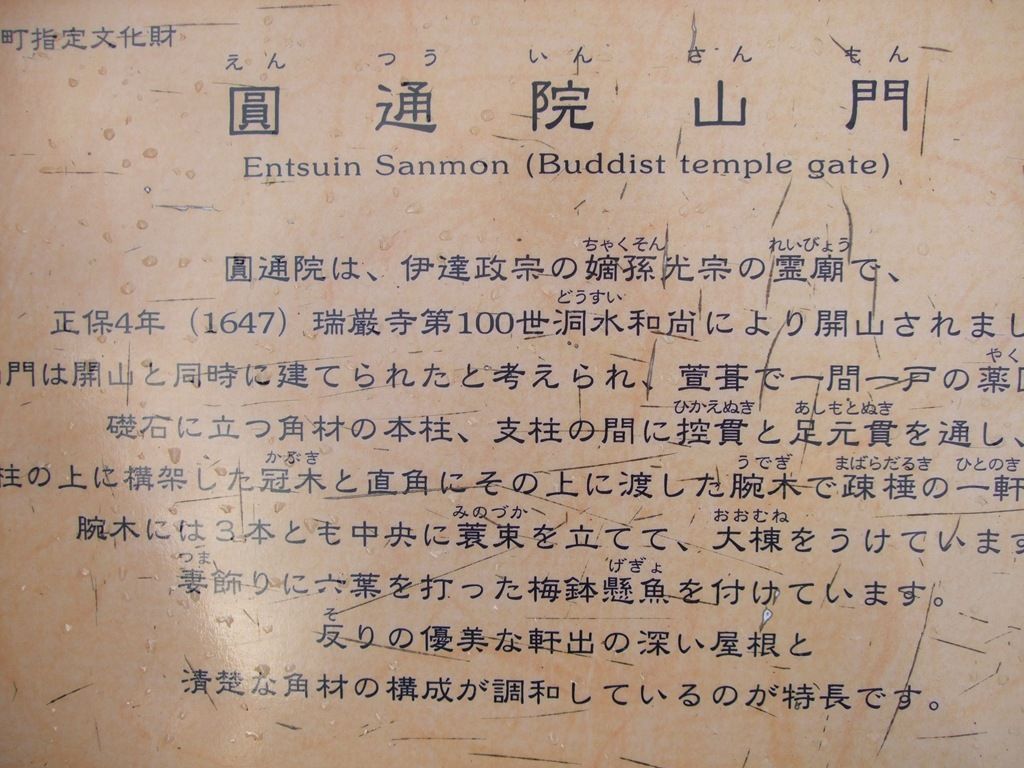 町指定文化財
えん つう いん さん もん
圓通院山門
Entsuin Sanmon (Buddist temple gate)
ちゃくそん れいびょう
圓通院は、伊達政宗の嫡孫光宗の霊廟で、
どうすい
正保4年（1647）瑞巌寺第100世洞水和尚により開山されまし
やく
門は開山と同時に建てられたと考えられ、萱葺で一間一戸の薬
ひかえぬき あしもとぬき
礎石に立つ角材の本柱、支柱の間に控貫と足元貫を通し、
かぶき うでぎ まばらだるき ひとのき
柱の上に構架した冠木と直角にその上に渡した腕木で疎棰の一軒
みのづか おおむね
腕木には3本とも中央に蓑束を立てて、大棟をうけています
つま げぎょ
妻飾りに六葉を打った梅鉢懸魚を付けています。
そ
反りの優美な軒出の深い屋根と
清楚な角材の構成が調和しているのが特長です。